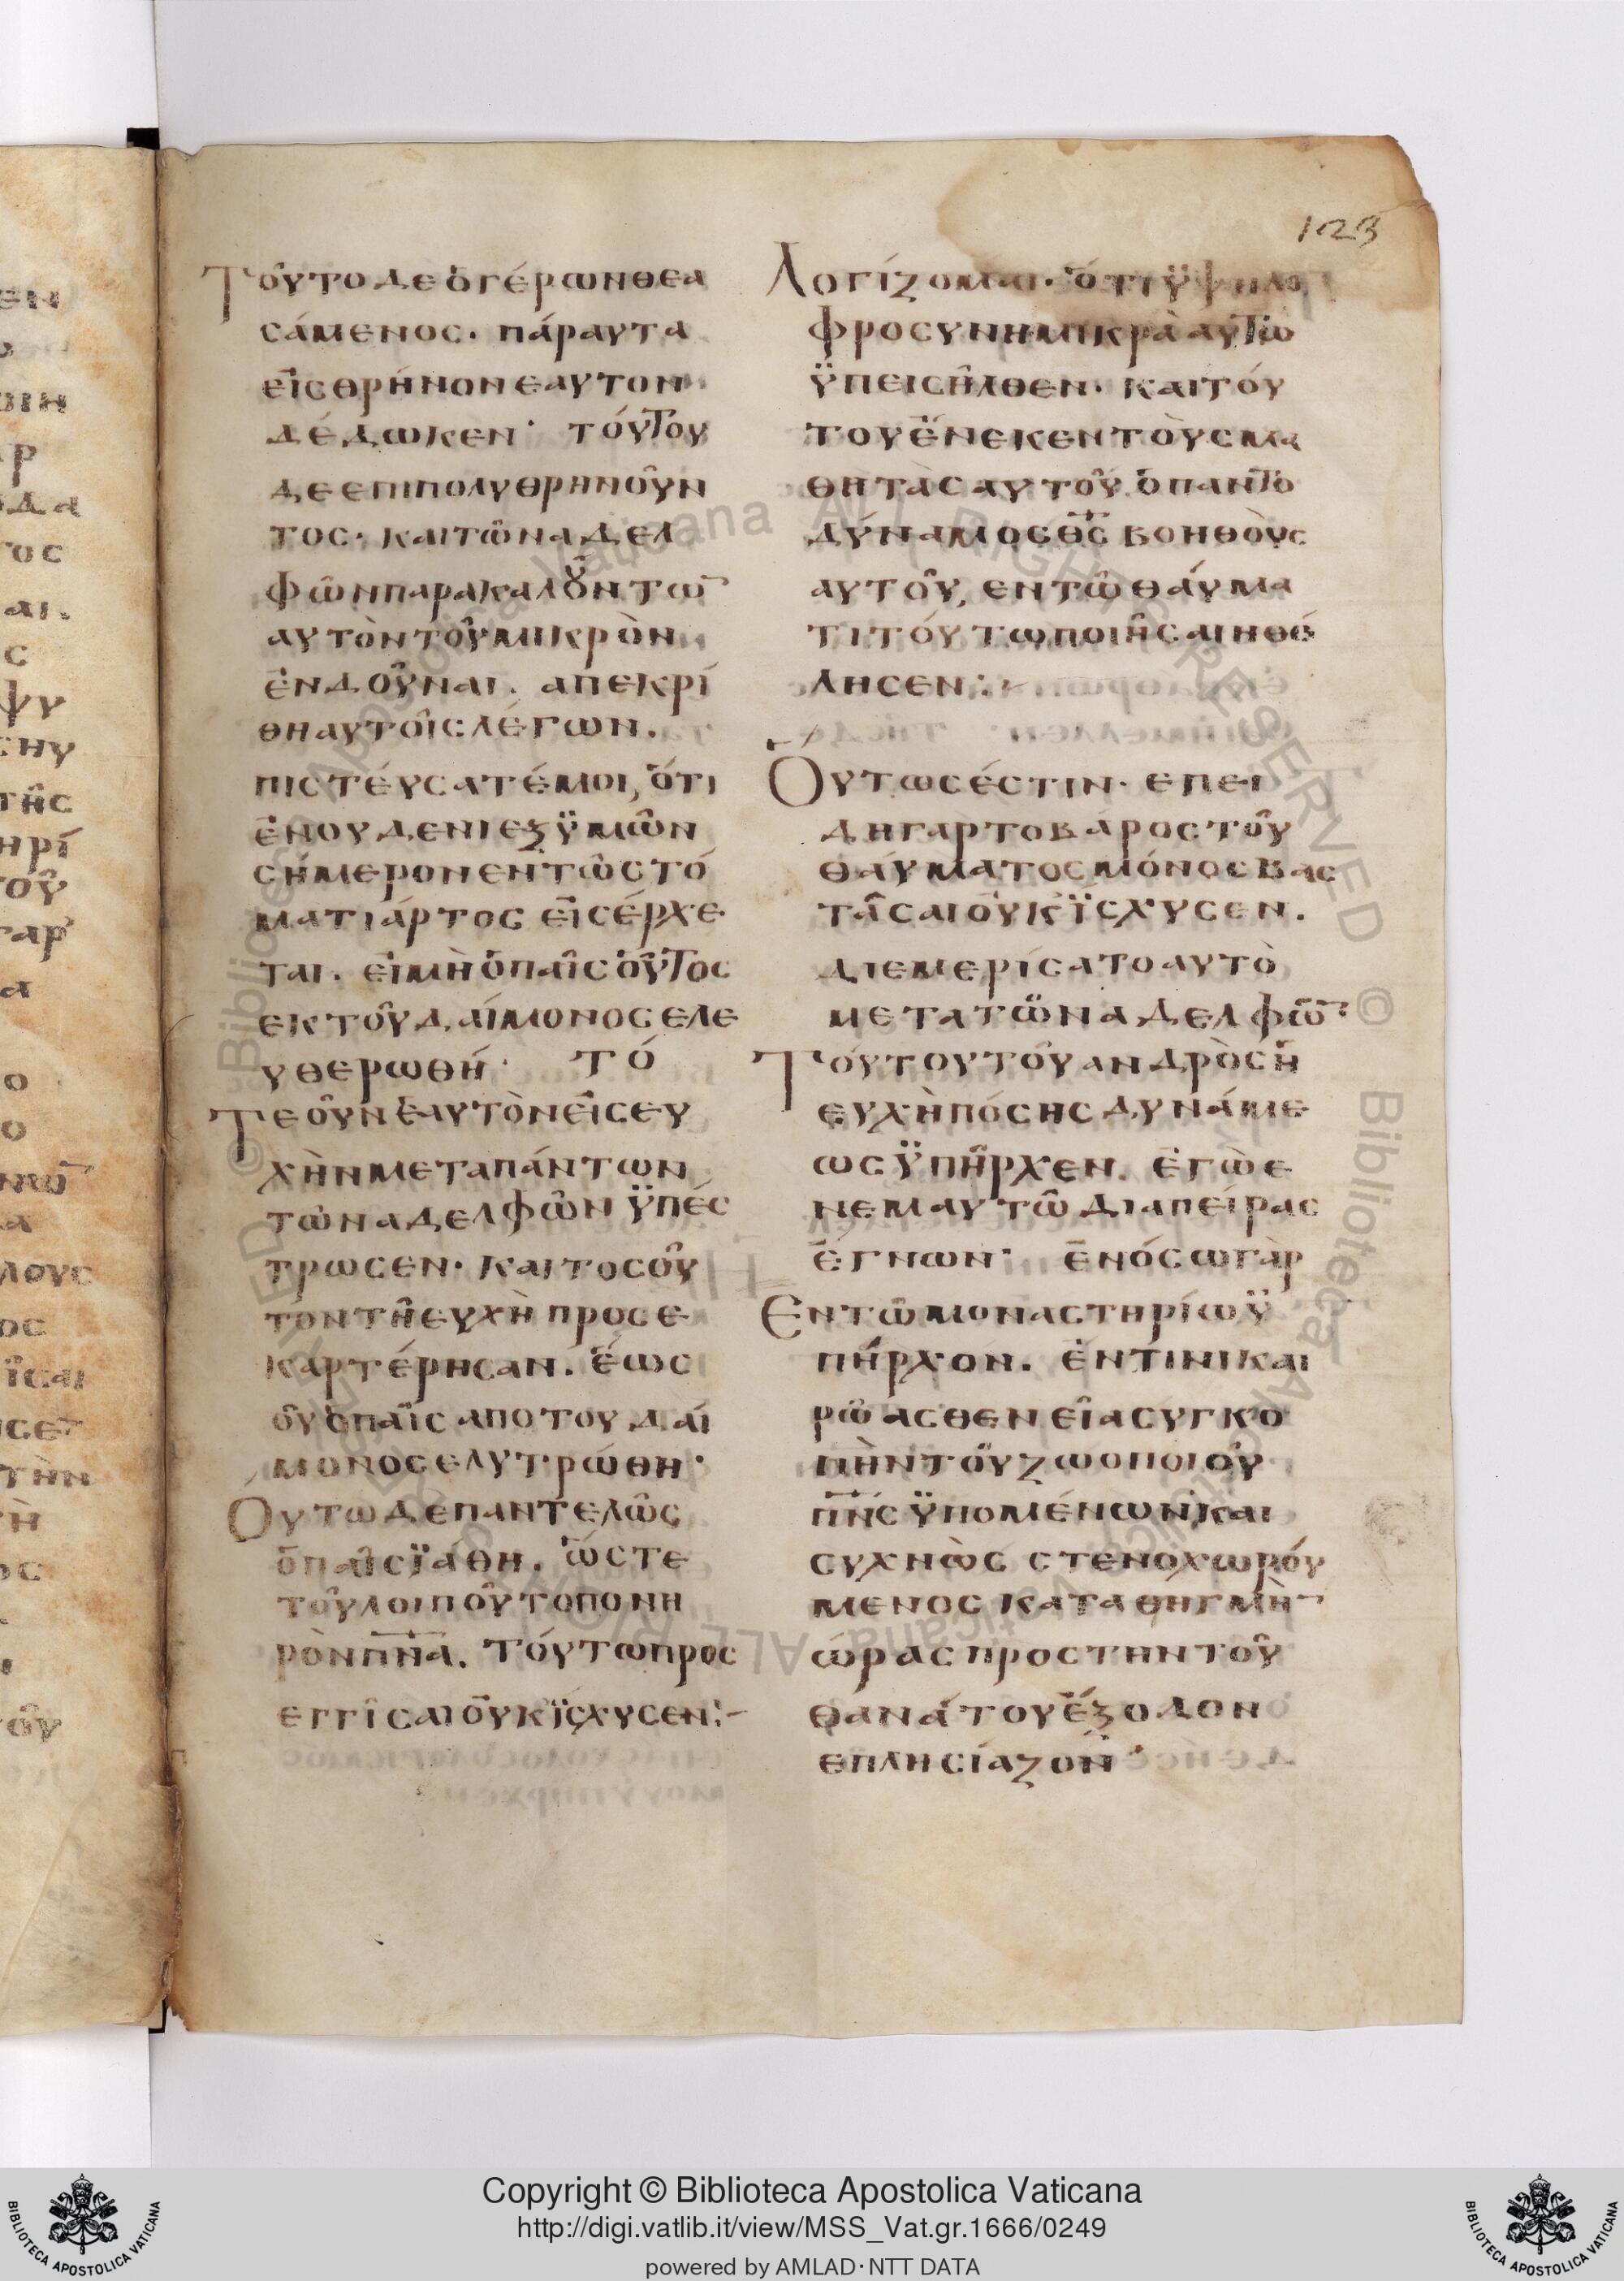 123
Τοῦτο δε ὁ γέρων θεα
σάμενος· πάραυτα
εἰς θρήνον εαυτον
δέδωκεν· τόυτου
δε επιπολυ θρηνοῦν
τος· και τῶν αδελ
φῶν παρακαλοῦντω̅
αυτὸν τοῦ μικρὸν
ἐνδοῦναι. απεκρί
θη αυτοῖς λέγων.
πιστέυσατέ μοι, ὅτι
ἐν ουδενι εξ ϋμῶν
σήμερον εν τῶ στό
ματι άρτος εἰσέρχε
ται. εἰ μὴ ὁ παῖς οὗτος
εκ τοῦ δαίμονος ελε
υθερωθή· Τό
Τε οῦν ἑαυτὸν εἰς ευ
χὴν μετα πάντων
τῶν αδελφῶν ϋπές
τρωσεν· και τοσοῦ
τον τῆ ευχὴ προσε
καρτέρησαν. ἕως
οῦ ὁ παῖς απο του δαί
μονος ελυτρώθη·
Ούτω δε παντελῶς
ὁ παῖς ϊαθη. ὥστε
τοῦ λοιποῦ το πονη
ρὸν π̅ν̅α̅. Τόυτω προς
εγγῖσαι οὐκ ΐσχυσεν:-
Λογίζομαι· ὅτι ϋψηλο
φροσυνη μικρὰ αύτω
ϋπεισῆλθεν· και τόυ
του ἕνεκεν τὸυς μα
θητὰς αυτοῦ ὁ παντο
δύναμος θ̅ς̅ βοηθὸυς
αυτοῦ, εν τῶ θάυμα
τι τόυτω ποιῆσαι ηθέ
λησεν:-
Όυτως έστιν· επει
δη γαρ το βαρος τοῦ
θάυματος μόνος βας
τᾶσαι οὐκ ΐσχυσεν.
διεμερίσατο αυτὸ
μετα τῶν αδελφῶ̅
Τόυτου τοῦ ανδρὸς ἡ
ευχὴ πόσης δυνάμε
ως ϋπῆρχεν. ἐγὼ ε
ν εμαυτῶ δια πείρας
ἔγνων· ἐν όσω γὰρ
Εν τῶ μοναστηρίω ϋ
πήρχον. ἐν τινι και
ρῶ ασθενεῖα συγκο
πὴν τοῦ ζωοποιοῦ
π̅ν̅ς̅ ϋπομένων, και
συχνῶς στενοχωρόυ
μενος κατα θηγμὴ̅
ώρας προς την τοῦ
θανάτου ἔξοδον
επλησίαζον·
Copyright © Biblioteca Apostolica Vaticana
http://digi.vatlib.it/view/MSS_Vat.gr.1666/0249
powered by AMLAD·NTT DATA
BIBLIOTECA APOSTOLICA VATICANA
BIBLIOTECA APOSTOLICA VATICANA